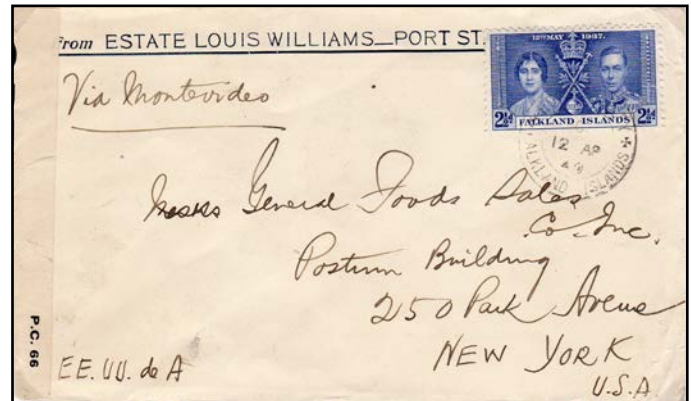 from ESTATE LOUIS WILLIAMS—PORT ST.
12TH MAY 1937.
2½d FALKLAND ISLANDS 2½d
Via Montevideo
12 AP
FALKLAND ISLANDS
Messrs General Foods Sales
Co. Inc.
Postum Building
250 Park Avenue
NEW YORK
U.S.A.
EE. UU. de A
P.C. 66